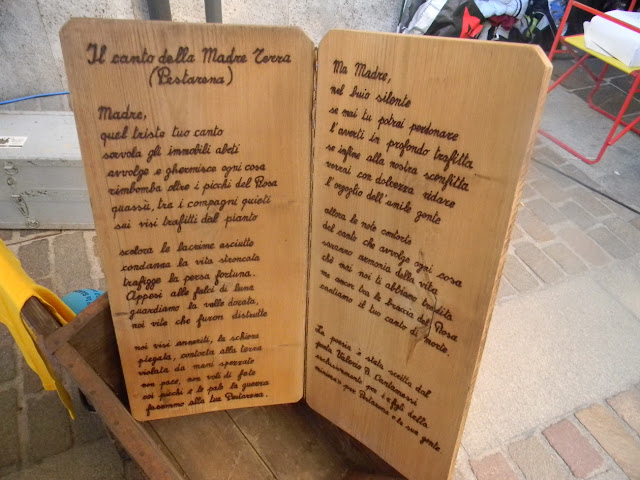 Il canto della Madre Terra
(Pestarena)
Madre,
quel triste tuo canto
sorvola gli immobili abeti
avvolge e ghermisce ogni cosa
rimbomba oltre i picchi del Rosa
quassù, tra i compagni quieti
sui visi trafitti dal pianto
scolora le lacrime asciutte
condanna la vita stroncata
trafigge la persa fortuna.
Appesi alle falci di luna
guardiamo la valle dorata,
noi vite che furon distrutte
noi visi anneriti, la schiena
piegata, contorta alla terra
violata da mani spezzate
non pace, non voli di fate
coi picchi e le pale la guerra
facemmo alla tua Pestarena.
Ma Madre,
nel buio silente
se mai tu potrai perdonare
l'averti in profondo trafitta
se infine alla nostra sconfitta
vorrai con dolcezza ridare
l'orgoglio dell'umile gente
allora le note contorte
del canto che avvolge ogni cosa
saranno armonia della vita
ché mai noi ti abbiamo tradita
ma ancor tra le braccia del Rosa
cantiamo il tuo canto di morte.
La poesia è stata scritta dal
poeta Valerio
esclusivamente per i figli della
miniera per Pestarena e la sua gente